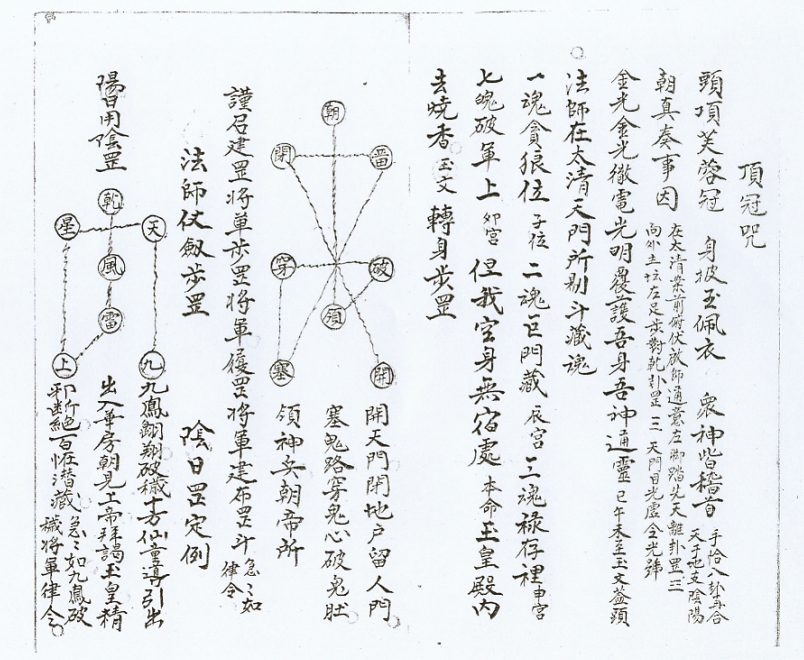 頂冠咒
頭頂芙蓉冠 身披玉佩衣 眾神皆稽首 手恰八卦再合天干地支陰陽
朝真奏事因 在太清案前俯伏啟師通意左脚踏先天離卦罡三 向外主壇左足 對乾卦罡三 天門目光虛 令光號
金光金光徹電光明覆護吾身吾神通靈 巳午未至玉文蓋頭
法師在太清天門所剔斗藏魂
一魂貪狼位 子位 二魂巨門藏 辰宮 三魂祿存裡 申宮
七魄破軍上 卯宮 但我空身無宿處 本命 玉皇殿內
去燒香 玉文 轉身步罡
朝
閉 留
穿 破
領
塞 開
開天門閉地戶留人門
塞鬼路穿鬼心破鬼肚
領神兵朝帝所
謹召建罡將軍步罡將軍履罡將軍建布罡斗 急々如律令
法師仗劍步罡 陰日罡定例
陽日用陰罡
乾
星 天
風
雷
上 九
九鳳翱翔破穢十方仙童導引出
出入華房朝見上帝拜謁玉皇精
邪断絕百怪潛藏 急々如九鳳破穢將軍律令